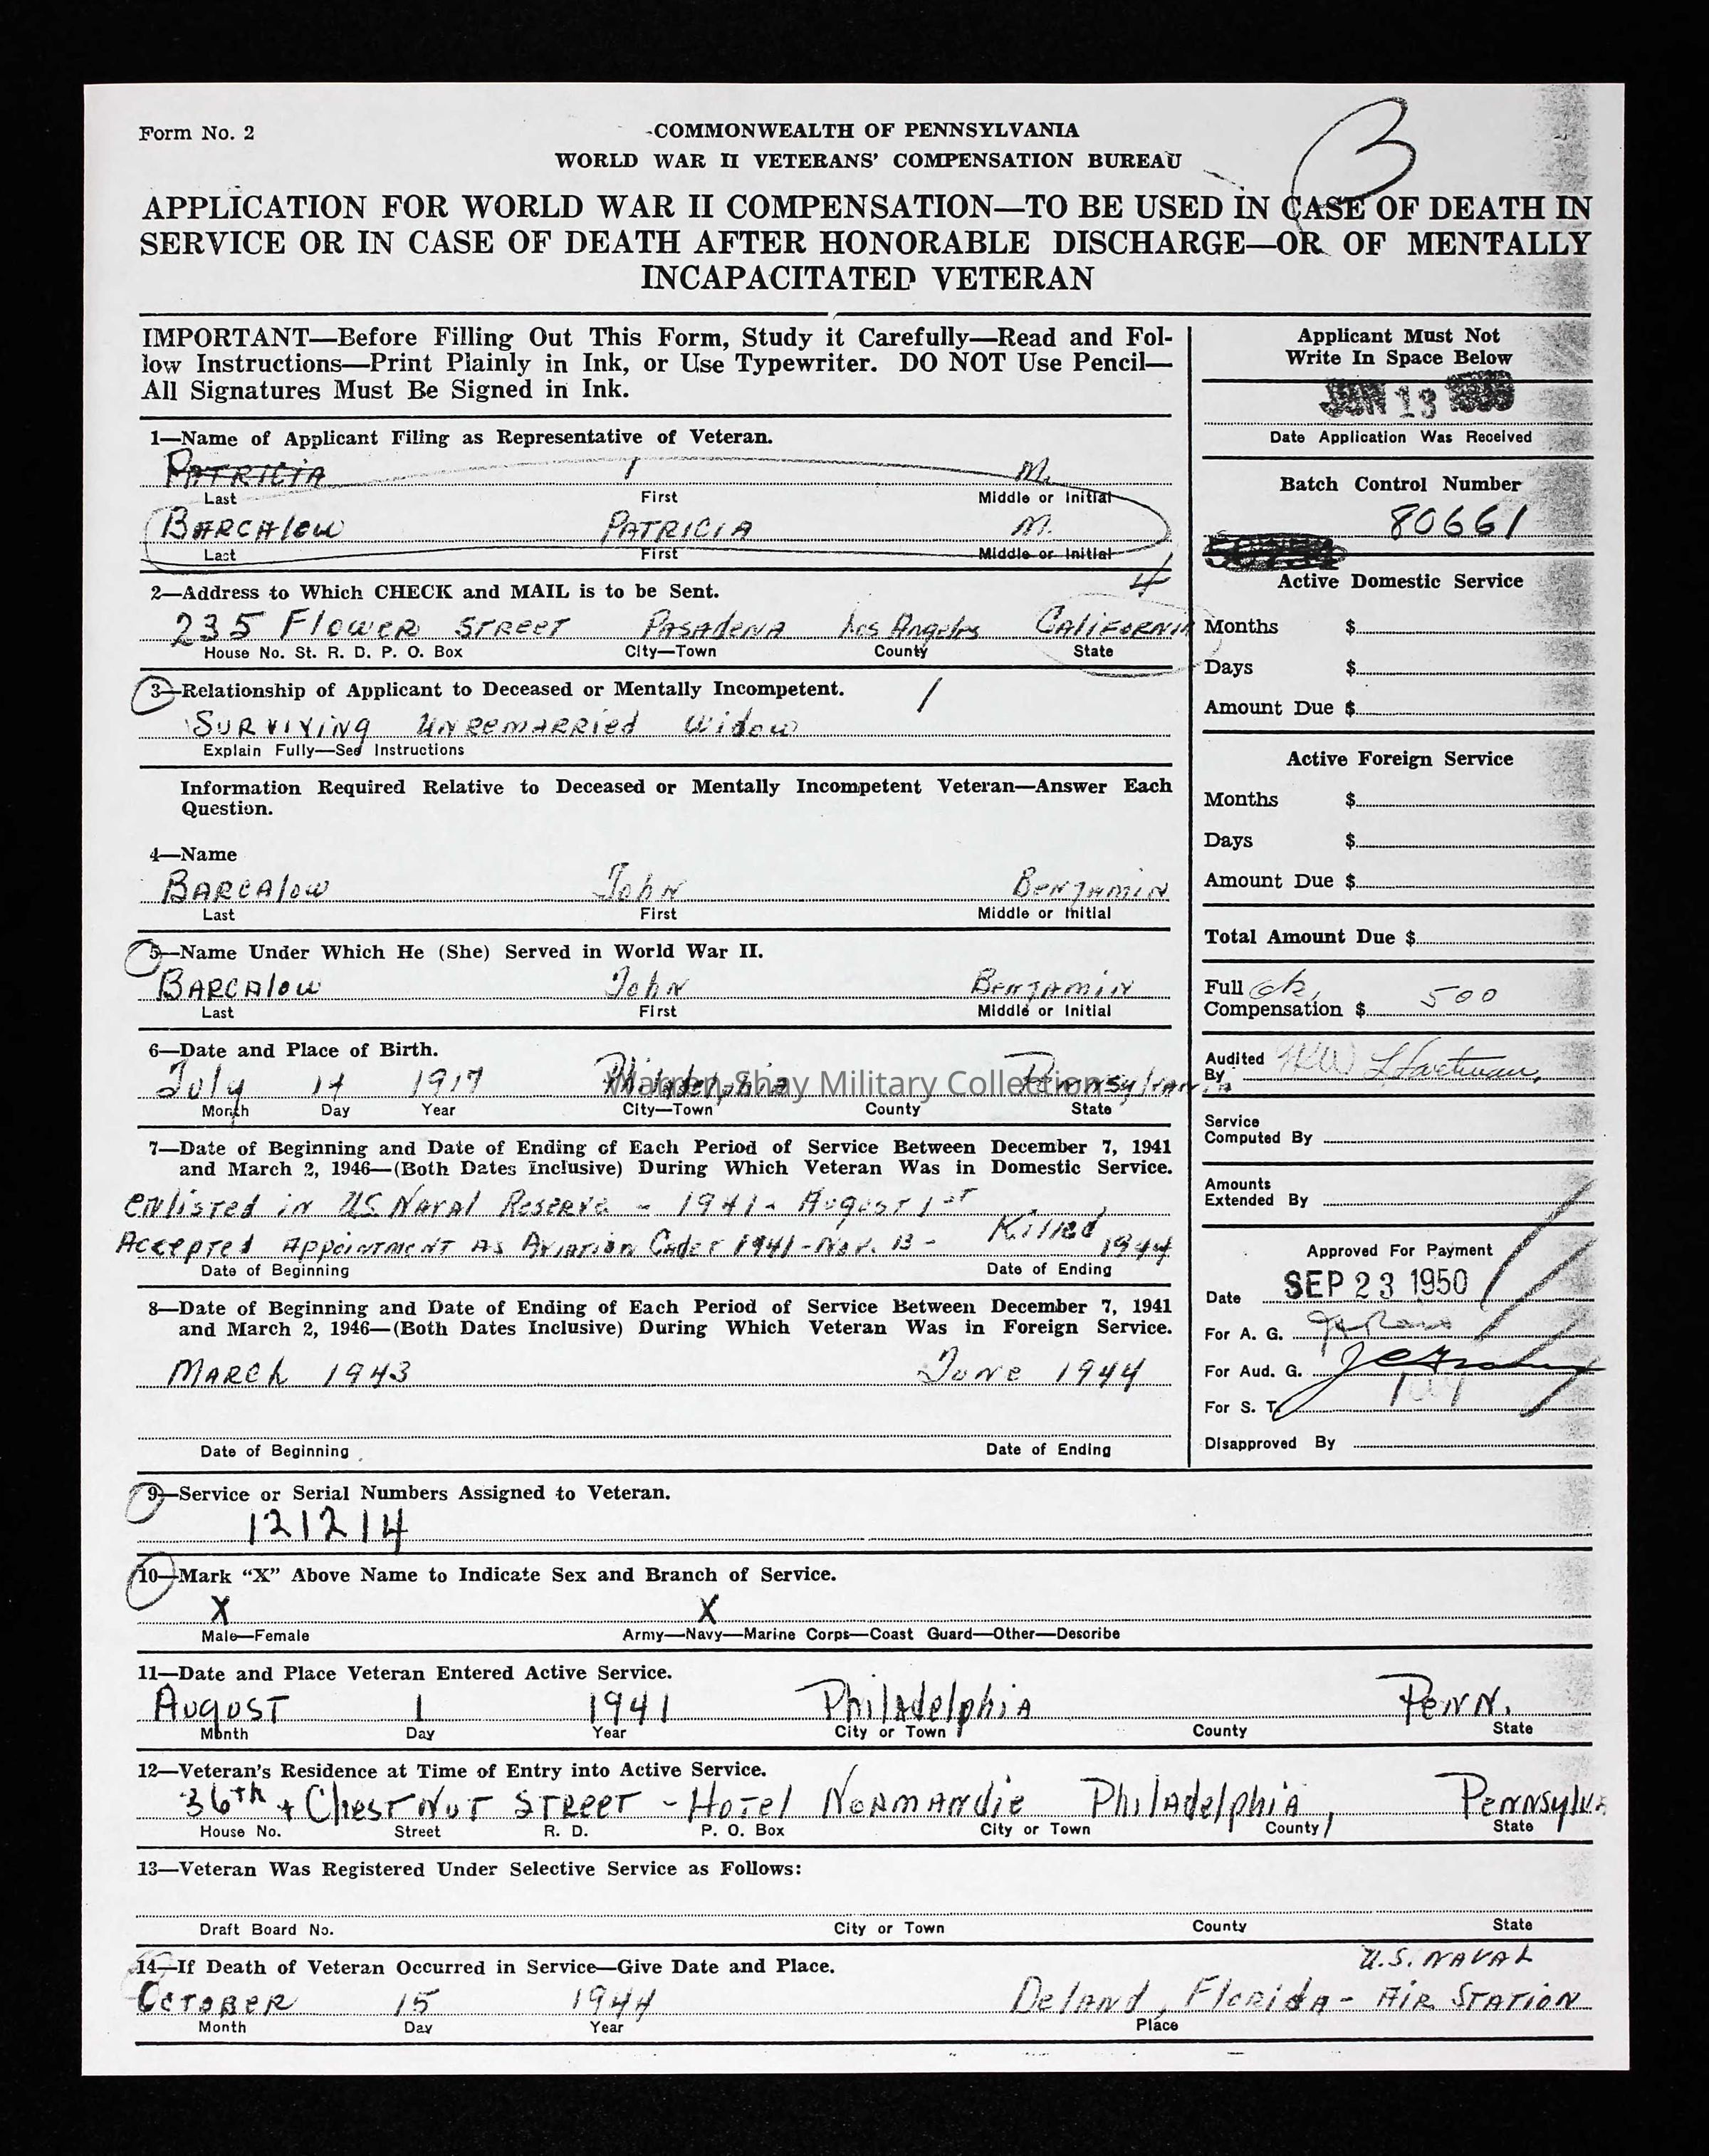 Form No. 2
COMMONWEALTH OF PENNSYLVANIA
WORLD WAR II VETERANS' COMPENSATION BUREAU
B
APPLICATION FOR WORLD WAR II COMPENSATION—TO BE USED IN CASE OF DEATH IN
SERVICE OR IN CASE OF DEATH AFTER HONORABLE DISCHARGE—OR OF MENTALLY
INCAPACITATED VETERAN
IMPORTANT—Before Filling Out This Form, Study it Carefully—Read and Fol-
low Instructions—Print Plainly in Ink, or Use Typewriter. DO NOT Use Pencil—
All Signatures Must Be Signed in Ink.
1—Name of Applicant Filing as Representative of Veteran.
PATRICIA M.
Last First Middle or Initial
BARCAlow PATRICIA M.
Last First Middle or Initial
2—Address to Which CHECK and MAIL is to be Sent.
4
235 Flower STReeT PASAdeNA Los Angeles CAliFORNIA
House No. St. R. D. P. O. Box City—Town County State
3—Relationship of Applicant to Deceased or Mentally Incompetent.
SURVIVING UNREMARRied Widow
Explain Fully—See Instructions
Information Required Relative to Deceased or Mentally Incompetent Veteran—Answer Each
Question.
4—Name
BARCAlow John BenJamin
Last First Middle or Initial
5—Name Under Which He (She) Served in World War II.
BARCAlow John BenJamin
Last First Middle or Initial
6—Date and Place of Birth.
July 14 1917 Philadelphia Pennsylvania
Month Day Year City—Town County State
7—Date of Beginning and Date of Ending of Each Period of Service Between December 7, 1941
and March 2, 1946—(Both Dates Inclusive) During Which Veteran Was in Domestic Service.
enlisted in US Naval Reserve - 1941 - August 1st
Accepted Appointment as Aviation Cadet 1941 - Nov. 13 - Killed 1944
Date of Beginning Date of Ending
8—Date of Beginning and Date of Ending of Each Period of Service Between December 7, 1941
and March 2, 1946—(Both Dates Inclusive) During Which Veteran Was in Foreign Service.
MARch 1943 June 1944
Date of Beginning Date of Ending
Applicant Must Not
Write In Space Below
JUN 13
Date Application Was Received
Batch Control Number
80661
Active Domestic Service
Months $
Days $
Amount Due $
Active Foreign Service
Months $
Days $
Amount Due $
Total Amount Due $
Full ok
Compensation $ 500
Audited
By
Service
Computed By
Amounts
Extended By
Approved For Payment
Date SEP 23 1950
For A. G.
For Aud. G.
For S. T.
Disapproved By
9—Service or Serial Numbers Assigned to Veteran.
121214
10—Mark "X" Above Name to Indicate Sex and Branch of Service.
X X
Male—Female Army—Navy—Marine Corps—Coast Guard—Other—Describe
11—Date and Place Veteran Entered Active Service.
August 1 1941 Philadelphia Penn.
Month Day Year City or Town County State
12—Veteran's Residence at Time of Entry into Active Service.
36th + Chestnut Street - Hotel Normandie Philadelphia, Pennsylva
House No. Street R. D. P. O. Box City or Town County State
13—Veteran Was Registered Under Selective Service as Follows:
Draft Board No. City or Town County State
14—If Death of Veteran Occurred in Service—Give Date and Place.
U.S. NAVAL
October 15 1944 Deland, Florida - Air Station
Month Day Year Place
Warren Shay Military Collection